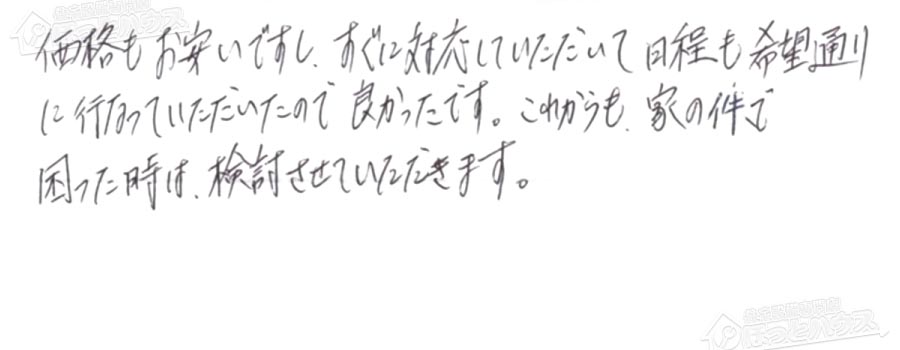 価格もお安いですし、すぐに対応していただいて日程も希望通り
に行なっていただいたので良かったです。これからも、家の件で
困った時は、検討させていただきます。
ほっとハウス